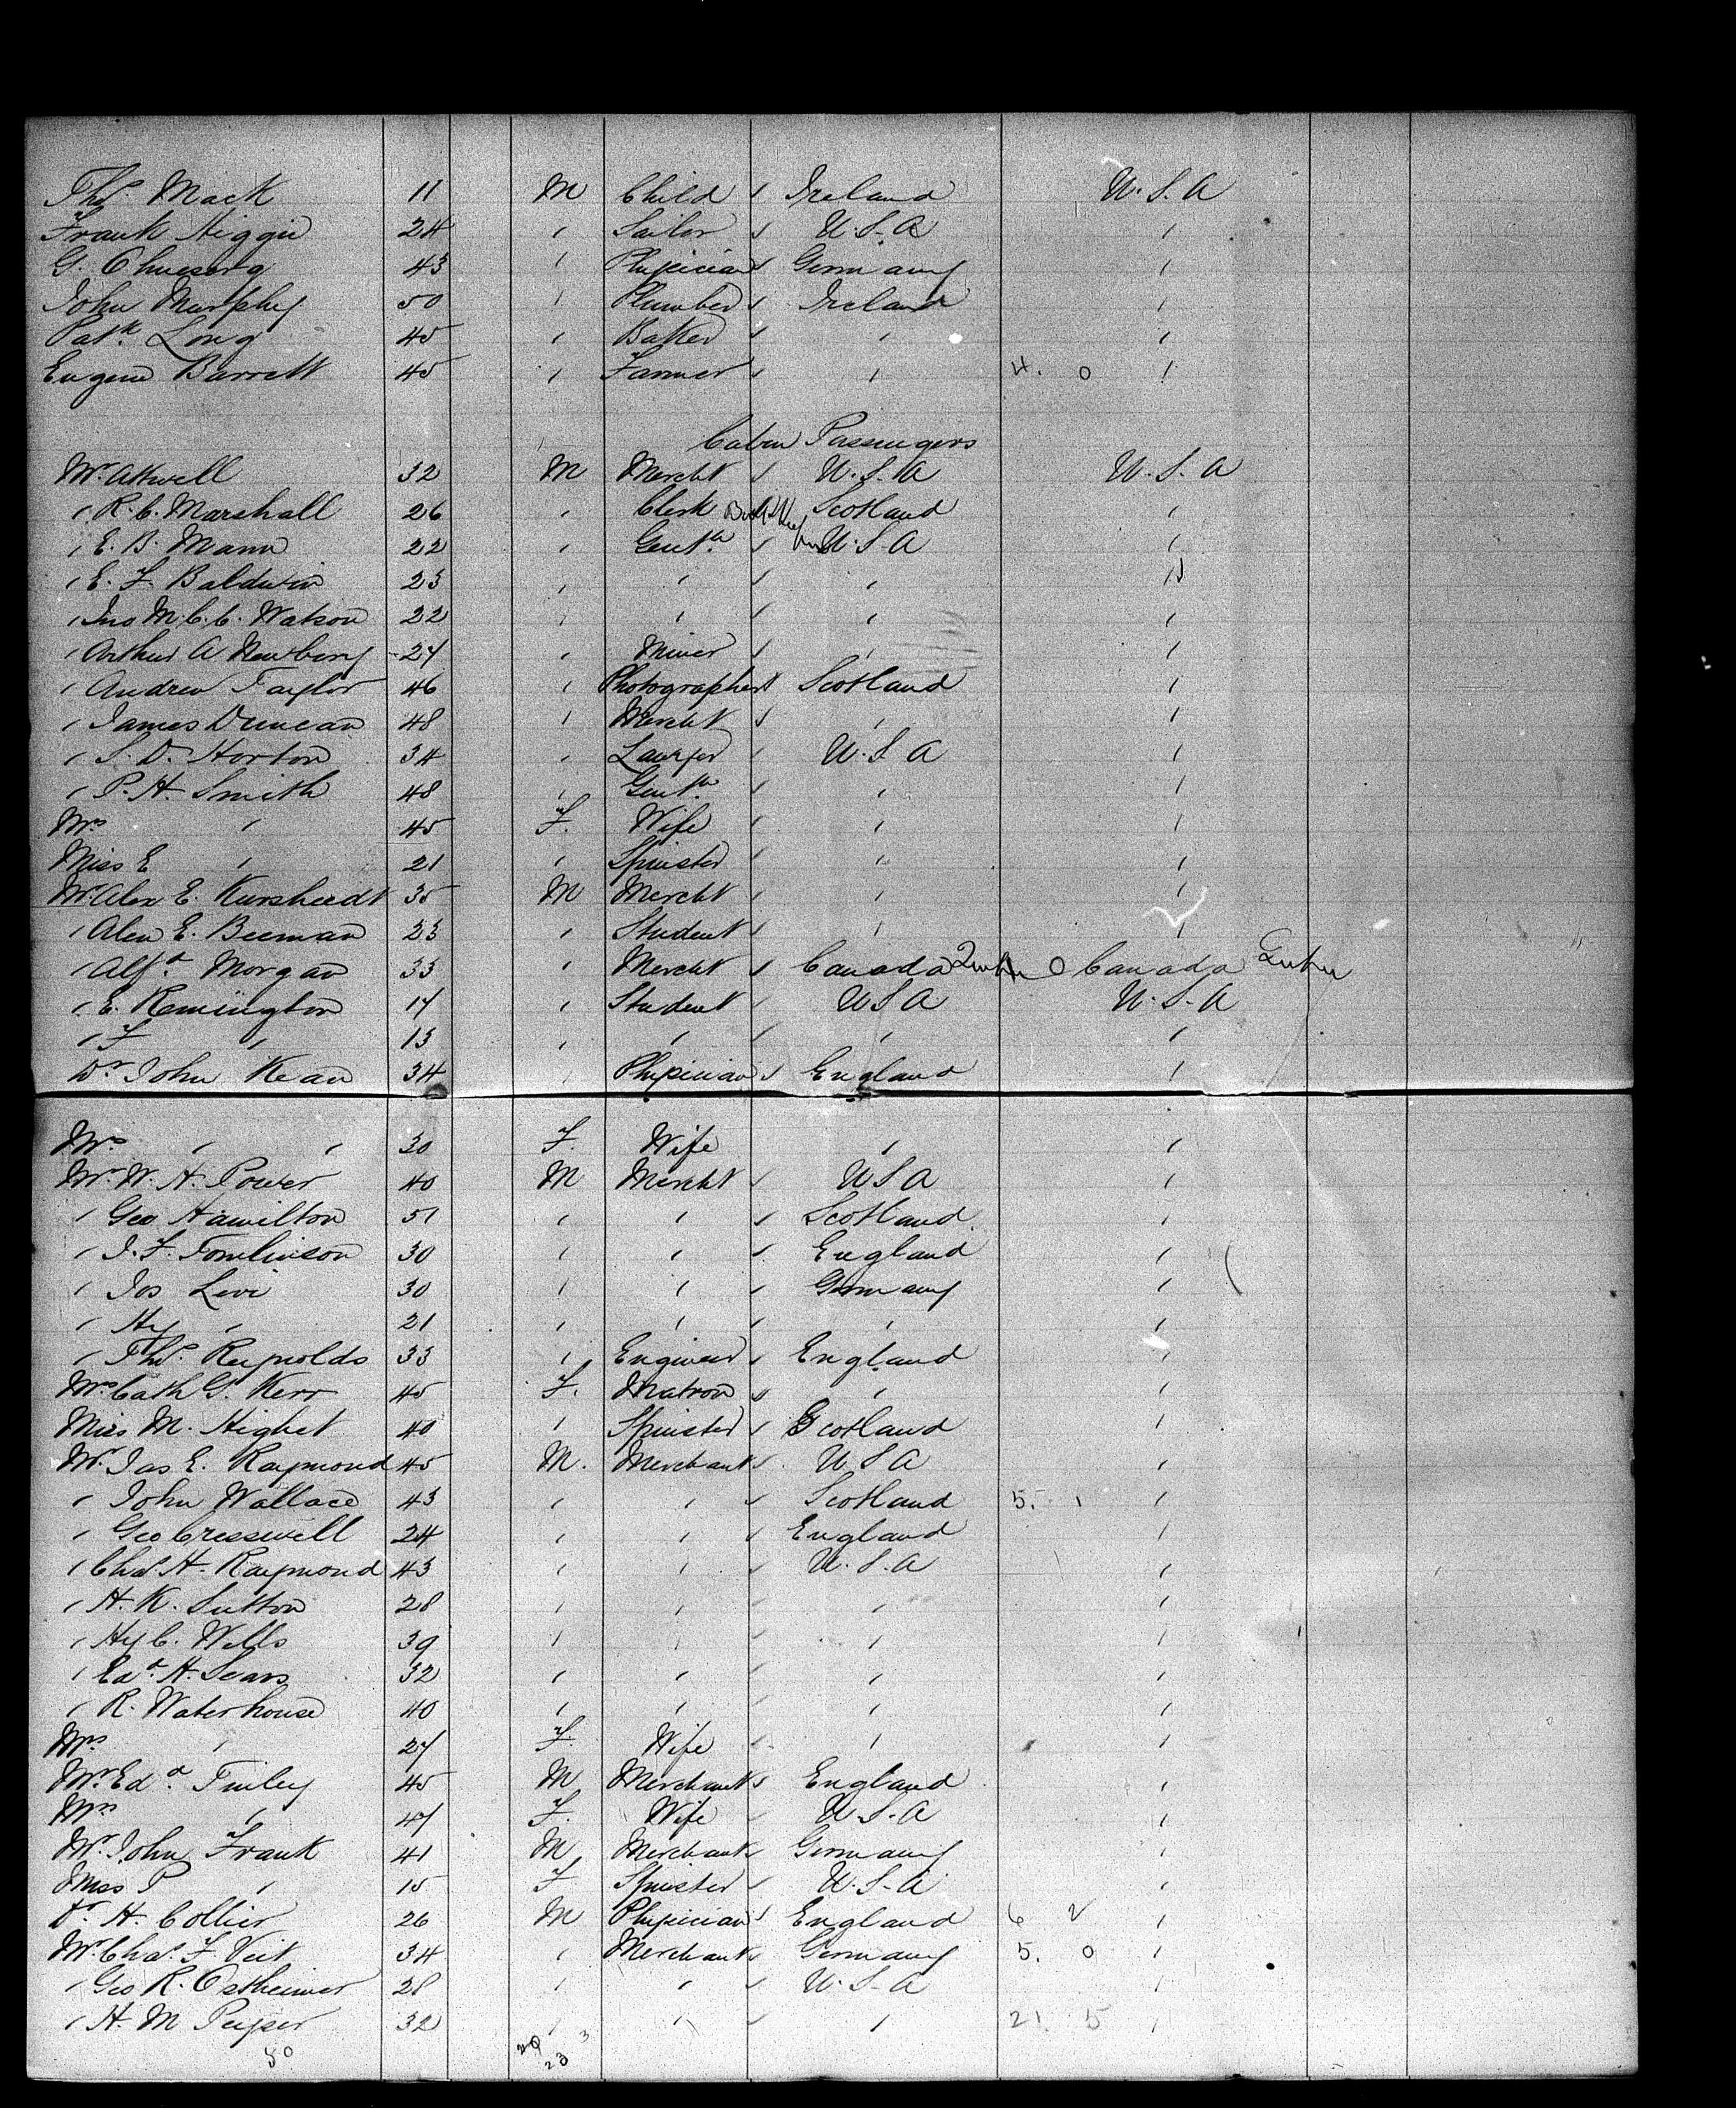 Thos. Mack 11 M Child Ireland U.S.A
Frank Higgin 24 " Sailor U.S.A "
G. 43 " Physician Germany "
John Murphy 50 " Plumber Ireland "
Patk. Long 45 " Baker " "
Eugene Barrett 45 " Farmer " 4. 0 "
Cabin Passengers
Mr. Atwell 32 M Mercht U.S.A U.S.A
" R.C. Marshall 26 " Clerk Scotland "
" E.B. Mann 22 " Gentn. U.S.A "
" E.F. Baldwin 23 " " " "
" Jno M.C.C. Watson 22 " " " "
" Arthur A Newbery 27 " Miner " "
" Andrew Taylor 46 " Photographer Scotland "
" James Duncan 48 " Mercht " "
" S.D. Horton 34 " Lawyer U.S.A "
" P.H. Smith 48 " Gentn. " "
Mrs " 45 F. Wife " "
Miss E " 21 " Spinster " "
Mr. Alex E. Kursheedt 35 M Mercht " "
" Alex E. Beeman 23 " Student " "
" Alfd. Morgan 33 " Mercht Canada 0 Canada
" E. Remington 17 " Student U S A U.S.A
" F " 13 " " " "
Dr. John Kean 34 " Physician England "
Mrs. " " 30 F. Wife " "
Mr. W.H. Power 40 M Mercht U S A "
" Geo Hamilton 51 " " Scotland "
" J.F. Tomlinson 30 " " England "
" Jos Levi 30 " " Germany "
" Hy " 21 " " " "
" Thos. Reynolds 33 " Engineer England "
Mrs. Cath G. Kerr 45 F. Matron " "
Miss M. Highet 40 " Spinster Scotland "
Mr. Jas E. Raymond 45 M. Merchant U S A "
" John Wallace 43 " " Scotland 5. 1 "
" Geo Cresswell 24 " " England "
" Chas. H. Raymond 43 " " U.S.A "
" H.K. Sutton 28 " " " "
" Hy C. Wells 39 " " " "
" Edd. H. Sears 32 " " " "
" R. Waterhouse 40 " " " "
Mrs " 27 F. Wife " "
Mr. Edd. Finley 45 M Merchant England "
Mrs " 47 F. Wife U.S.A "
Mr. John Frank 41 M Merchant Germany "
Miss P " 15 F Spinster U.S.A "
Dr. H. Collier 26 M Physician England 6 2 "
Mr. Chas. F. Veit 34 " Merchant Germany 5. 0 "
" Geo R. Ostheimer 28 " " U.S.A "
" H.M Peyser 32 " " " 21. 5 "
50 29 3
23